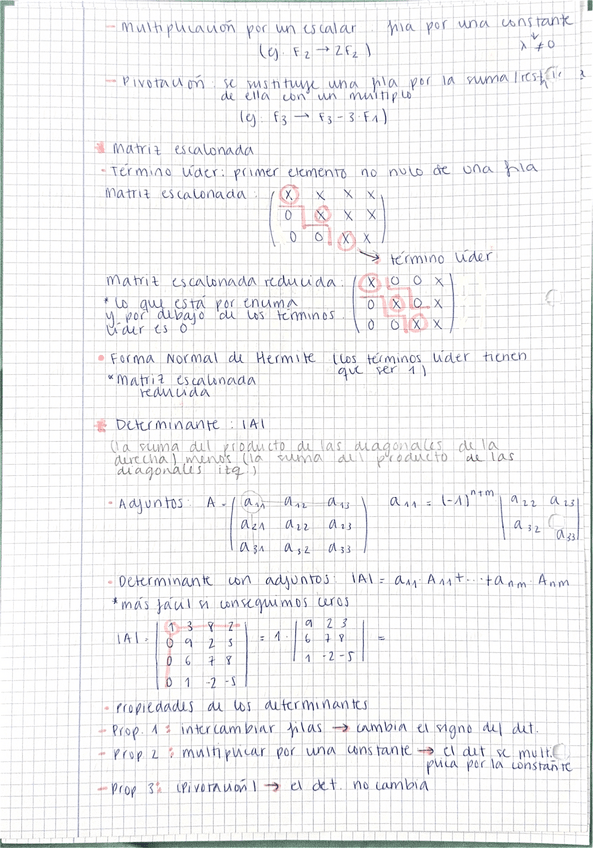 - Multiplicación por un escalar. fila por una constante
(ej. F₂ → 2F₂) λ ≠ 0
- Pivotación: se sustituye una fila por la suma/
de ella con un multiplo
(ej. F₃ → F₃ - 3·F₁)
* Matriz escalonada
- Término líder: primer elemento no nulo de una fila
Matriz escalonada: ( x x x x
0 x x x
0 0 x x )
→ término líder
Matriz escalonada reducida: ( x 0 0 x
* lo que está por encima 0 x 0 x
y por debajo de los terminos 0 0 x x )
líder es 0
• Forma Normal de Hermite (los términos líder tienen
que ser 1)
* Matriz escalonada
reducida
* Determinante: |A|
(la suma del producto de las diagonales de la
derecha) menos (la suma del producto de las
diagonales izq.)
- Adjuntos: A = ( a₁₁ a₁₂ a₁₃ a₁₁ = (-1)ⁿ⁺ᵐ | a₂₂ a₂₃
a₂₁ a₂₂ a₂₃ a₃₂ a₃₃ |
a₃₁ a₃₂ a₃₃ )
- Determinante con adjuntos: |A| = a₁₁·A₁₁ + ... + aₙₘ·Aₙₘ
* más fácil si conseguimos ceros
|A| = | 1 3 8 2 | = 1· | 9 2 3 | =
0 9 2 3 6 7 8
0 6 7 8 1 -2 -5
0 1 -2 -5
- Propiedades de los determinantes
- Prop. 1: intercambiar filas → cambia el signo del det.
- Prop 2: multiplicar por una constante → el det se multi
plica por la constante
- Prop 3: (Pivotación) → el det. no cambia